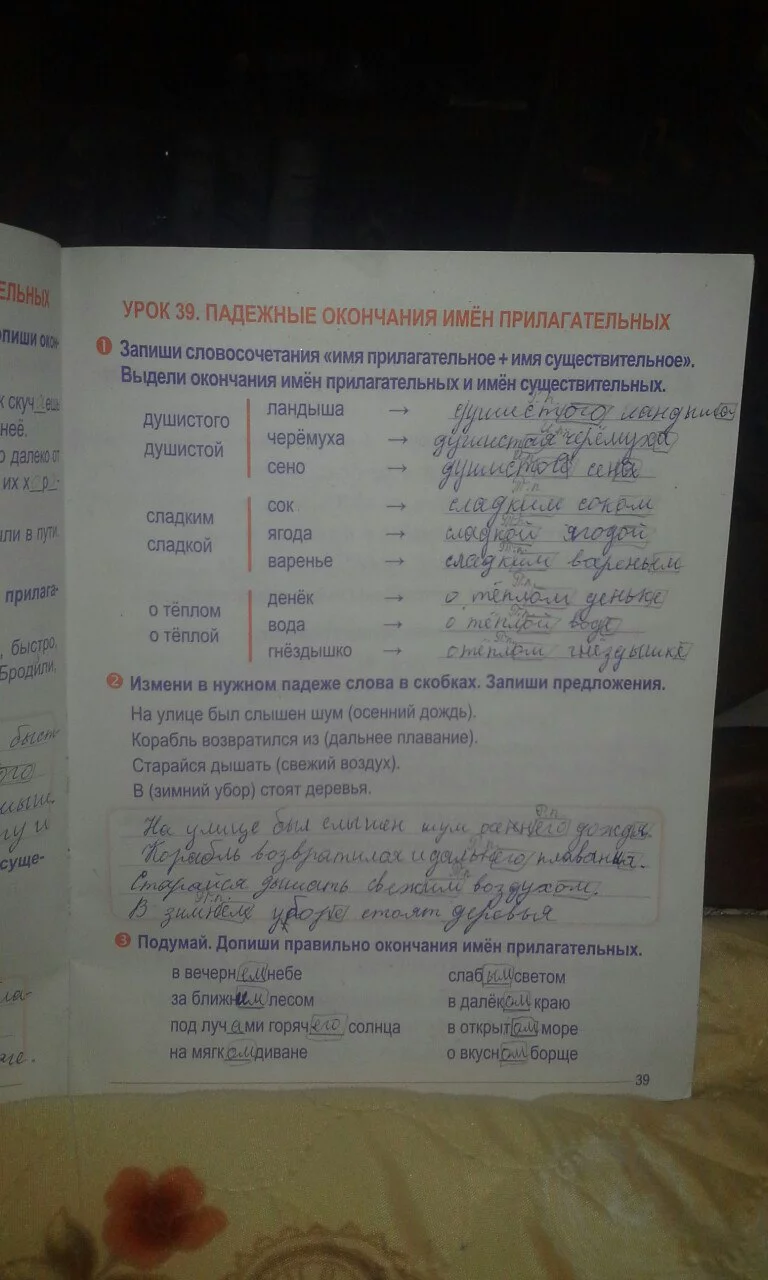 ЕЛЬНЫХ
опиши окон-
к скуч ешь
неё.
о далеко от
их х р -
шли в пути.
прилага-
, быстро,
Бродили,
быст
ого
суще-
УРОК 39. ПАДЕЖНЫЕ ОКОНЧАНИЯ ИМЁН ПРИЛАГАТЕЛЬНЫХ
1 Запиши словосочетания «имя прилагательное + имя существительное».
Выдели окончания имён прилагательных и имён существительных.
душистого
душистой
ландыша → душистого ландыша
черёмуха → душистая черёмуха
сено → сена
сладким
сладкой
сок → сладким соком
ягода → сладкой ягодой
варенье → сладким вареньем
о тёплом
о тёплой
денёк → о тёплом деньке
вода → о тёплой воде
гнёздышко → о тёплом гнёздышке
2 Измени в нужном падеже слова в скобках. Запиши предложения.
На улице был слышен шум (осенний дождь).
Корабль возвратился из (дальнее плавание).
Старайся дышать (свежий воздух).
В (зимний убор) стоят деревья.
На улице был слышен шум дождя.
Корабль дальнего плавания.
Старайся дышать свежим воздухом.
В зимнем уборе стоят деревья
3 Подумай. Допиши правильно окончания имён прилагательных.
в вечернем небе
за ближним лесом
под лучами горячего солнца
на мягком диване
слабым светом
в далёком краю
в открытом море
о вкусном борще
39